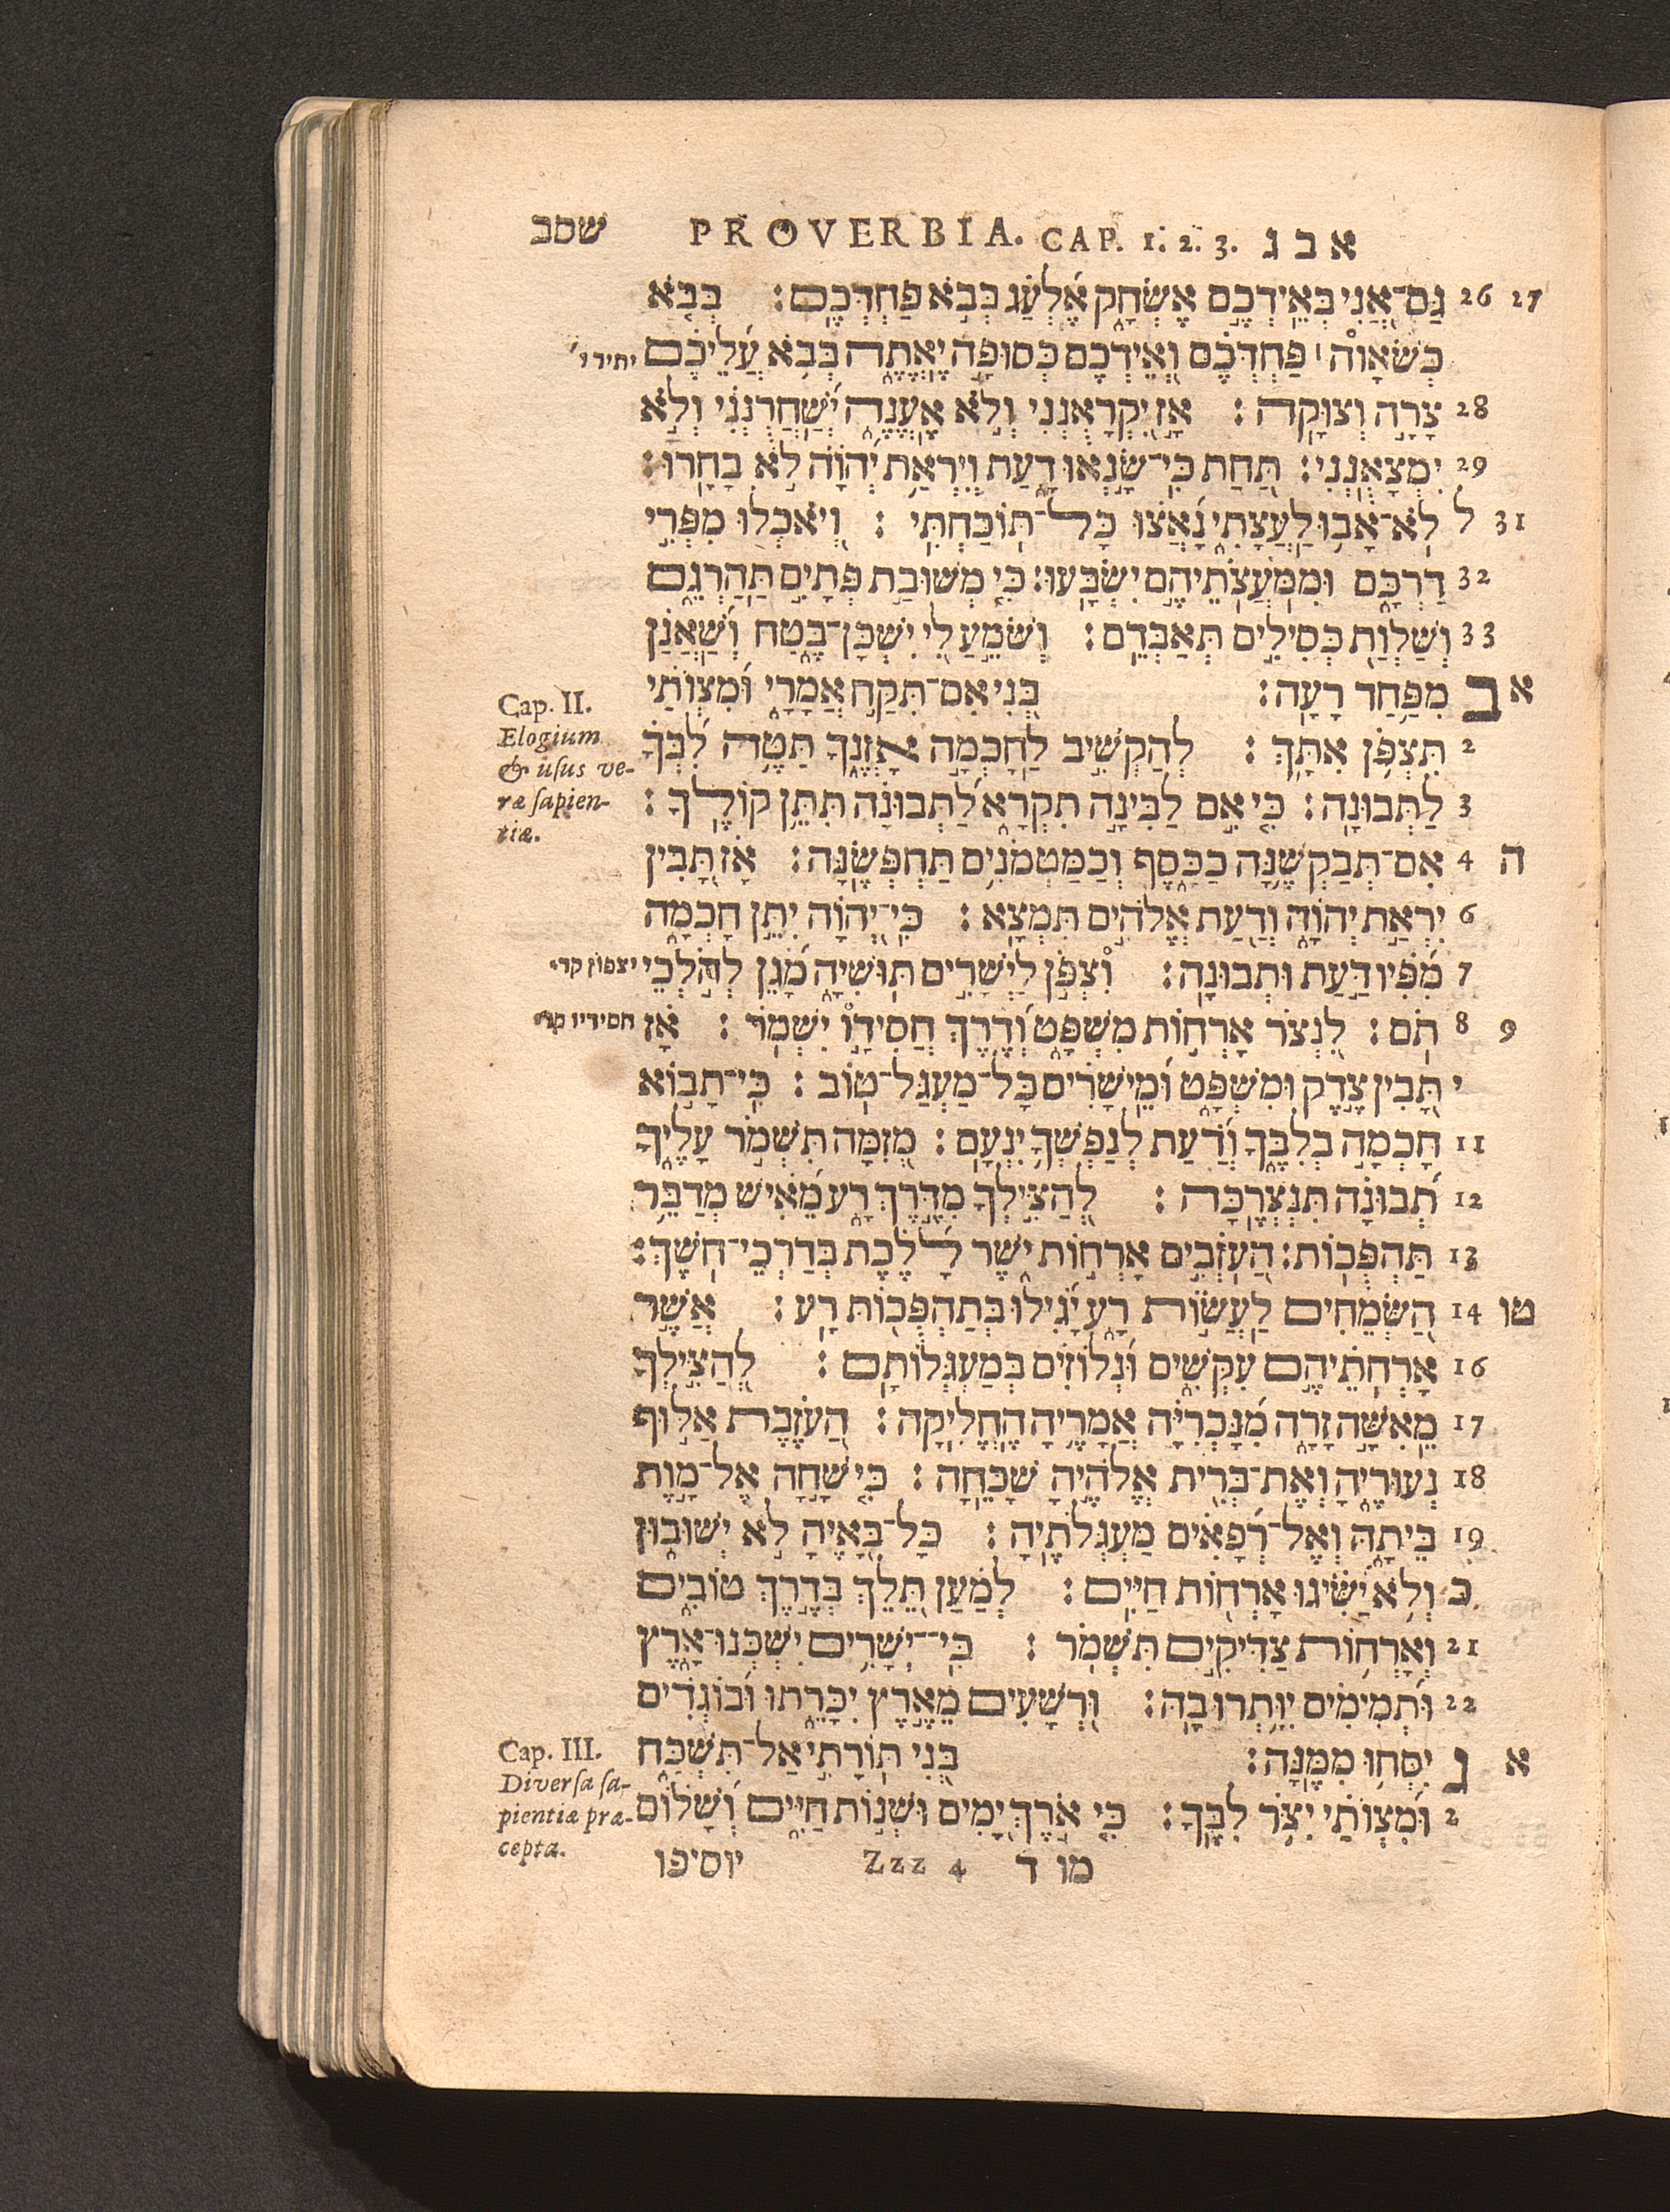 שסב PROVERBIA. CAP. 1. 2. 3. א ב ג
27 26 גַּם־אֲנִי בְּאֵידְכֶם אֶשְׂחָק אֶלְעַג בְּבֹא פַחְדְּכֶם׃ בְּבֹא
כְּשֹׁאָוה׀ פַּחְדְּכֶם וְאֵידְכֶם כְּסוּפָה יֶאֱתֶה בְּבֹא עֲלֵיכֶם
28 צָרָה וְצוּקָה׃ אָז יִקְרָאֻנְנִי וְלֹא אֶעֱנֶה יְשַׁחֲרֻנְנִי וְלֹא
29 יִמְצָאֻנְנִי׃ תַּחַת כִּי־שָׂנְאוּ דָעַת וְיִרְאַת יְהוָה לֹא בָחָרוּ׃
31 ל לֹא־אָבוּ לַעֲצָתִי נָאֲצוּ כָּל־תּוֹכַחְתִּי׃ וְיֹאכְלוּ מִפְּרִי
32 דַרְכָּם וּמִמֹּעֲצֹתֵיהֶם יִשְׂבָּעוּ׃ כִּי מְשׁוּבַת פְּתָיִם תַּהַרְגֵם
33 וְשַׁלְוַת כְּסִילִים תְּאַבְּדֵם׃ וְשֹׁמֵעַ לִי יִשְׁכָּן־בֶּטַח וְשַׁאֲנַן
א ב מִפַּחַד רָעָה׃ בְּנִי אִם־תִּקַּח אֲמָרָי וּמִצְוֹתַי
2 תִּצְפֹּן אִתָּךְ׃ לְהַקְשִׁיב לַחָכְמָה אָזְנֶךָ תַּטֶּה לִבְּךָ
3 לַתְּבוּנָה׃ כִּי אִם לַבִּינָה תִקְרָא לַתְּבוּנָה תִּתֵּן קוֹלֶךָ׃
ה 4 אִם־תְּבַקְשֶׁנָּה כַכָּסֶף וְכַמַּטְמֹנִים תַּחְפְּשֶׂנָּה׃ אָז תָּבִין
6 יִרְאַת יְהוָה וְדַעַת אֱלֹהִים תִּמְצָא׃ כִּי־יְהוָה יִתֵּן חָכְמָה
7 מִפִּיו דַּעַת וּתְבוּנָה׃ וִצְפֹּן לַיְשָׁרִים תּוּשִׁיָּה מָגֵן לְהֹלְכֵי
9 8 תֹם׃ לִנְצֹר אָרְחוֹת מִשְׁפָּט וְדֶרֶךְ חֲסִידָו יִשְׁמֹר׃ אָז
י תָּבִין צֶדֶק וּמִשְׁפָּט וּמֵישָׁרִים כָּל־מַעְגַּל־טוֹב׃ כִּי־תָבוֹא
11 חָכְמָה בְלִבֶּךָ וְדַעַת לְנַפְשְׁךָ יִנְעָם׃ מְזִמָּה תִּשְׁמֹר עָלֶיךָ
12 תְּבוּנָה תִנְצְרֶכָּה׃ לְהַצִּילְךָ מִדֶּרֶךְ רָע מֵאִישׁ מְדַבֵּר
13 תַּהְפֻּכוֹת׃ הַעֹזְבִים אָרְחוֹת יֹשֶׁר לָלֶכֶת בְּדַרְכֵי־חֹשֶׁךְ׃
טו 14 הַשְּׂמֵחִים לַעֲשׂוֹת רָע יָגִילוּ בְּתַהְפֻּכוֹת רָע׃ אֲשֶׁר
16 אָרְחֹתֵיהֶם עִקְּשִׁים וּנְלוֹזִים בְּמַעְגְּלוֹתָם׃ לְהַצִּילְךָ
17 מֵאִשָּׁה זָרָה מִנָּכְרִיָּה אֲמָרֶיהָ הֶחֱלִיקָה׃ הַעֹזֶבֶת אַלּוּף
18 נְעוּרֶיהָ וְאֶת־בְּרִית אֱלֹהֶיהָ שָׁכֵחָה׃ כִּי שָׁחָה אֶל־מָוֶת
19 בֵּיתָהּ וְאֶל־רְפָאִים מַעְגְּלֹתֶיהָ׃ כָּל־בָּאֶיהָ לֹא יְשׁוּבוּן
כ וְלֹא יַשִּׂיגוּ אָרְחוֹת חַיִּים׃ לְמַעַן תֵּלֵךְ בְּדֶרֶךְ טוֹבִים
21 וְאָרְחוֹת צַדִּיקִים תִּשְׁמֹר׃ כִּי־יְשָׁרִים יִשְׁכְּנוּ־אָרֶץ
22 וּתְמִימִים יִוָּתְרוּ בָהּ׃ וּרְשָׁעִים מֵאֶרֶץ יִכָּרֵתוּ וּבוֹגְדִים
א ג יִסְּחוּ מִמֶּנָּה׃ בְּנִי תּוֹרָתִי אַל־תִּשְׁכָּח
2 וּמִצְוֹתַי יִצֹּר לִבֶּךָ׃ כִּי אֹרֶךְ יָמִים וּשְׁנוֹת חַיִּים וְשָׁלוֹם
מו ד Zzz 4 יוסיפו
יצפון קרי
חסידיו קרי
Cap. II.
Elogium
& usus ve-
ræ sapien-
tiæ.
Cap. III.
Diversa sa-
pientiæ præ-
cepta.